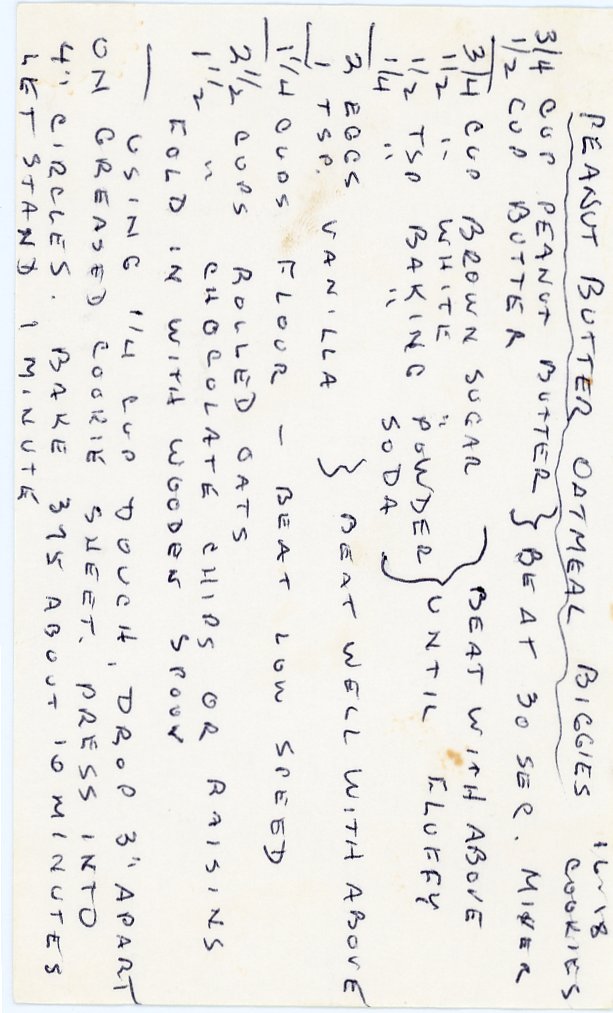 PEANUT BUTTER OATMEAL BIGGIES 16-18 COOKIES
3/4 CUP PEANUT BUTTER } BEAT 30 SER. MIXER
1/2 CUP BUTTER
3/4 CUP BROWN SUGAR } BEAT WITH ABOVE
1/2 " WHITE "
1/2 TSP BAKING POWDER UNTIL FLUFFY
1/4 " " SODA
2 EGGS } BEAT WELL WITH ABOVE
1 TSP. VANILLA
1 1/4 CUPS FLOUR – BEAT LOW SPEED
2 1/2 CUPS ROLLED OATS
1 1/2 " CHOCOLATE CHIPS OR RAISINS
FOLD IN WITH WOODEN SPOON
USING 1/4 CUP DOUGH, DROP 3" APART
ON GREASED COOKIE SHEET. PRESS INTO
4" CIRCLES. BAKE 375 ABOUT 10 MINUTES
LET STAND 1 MINUTE